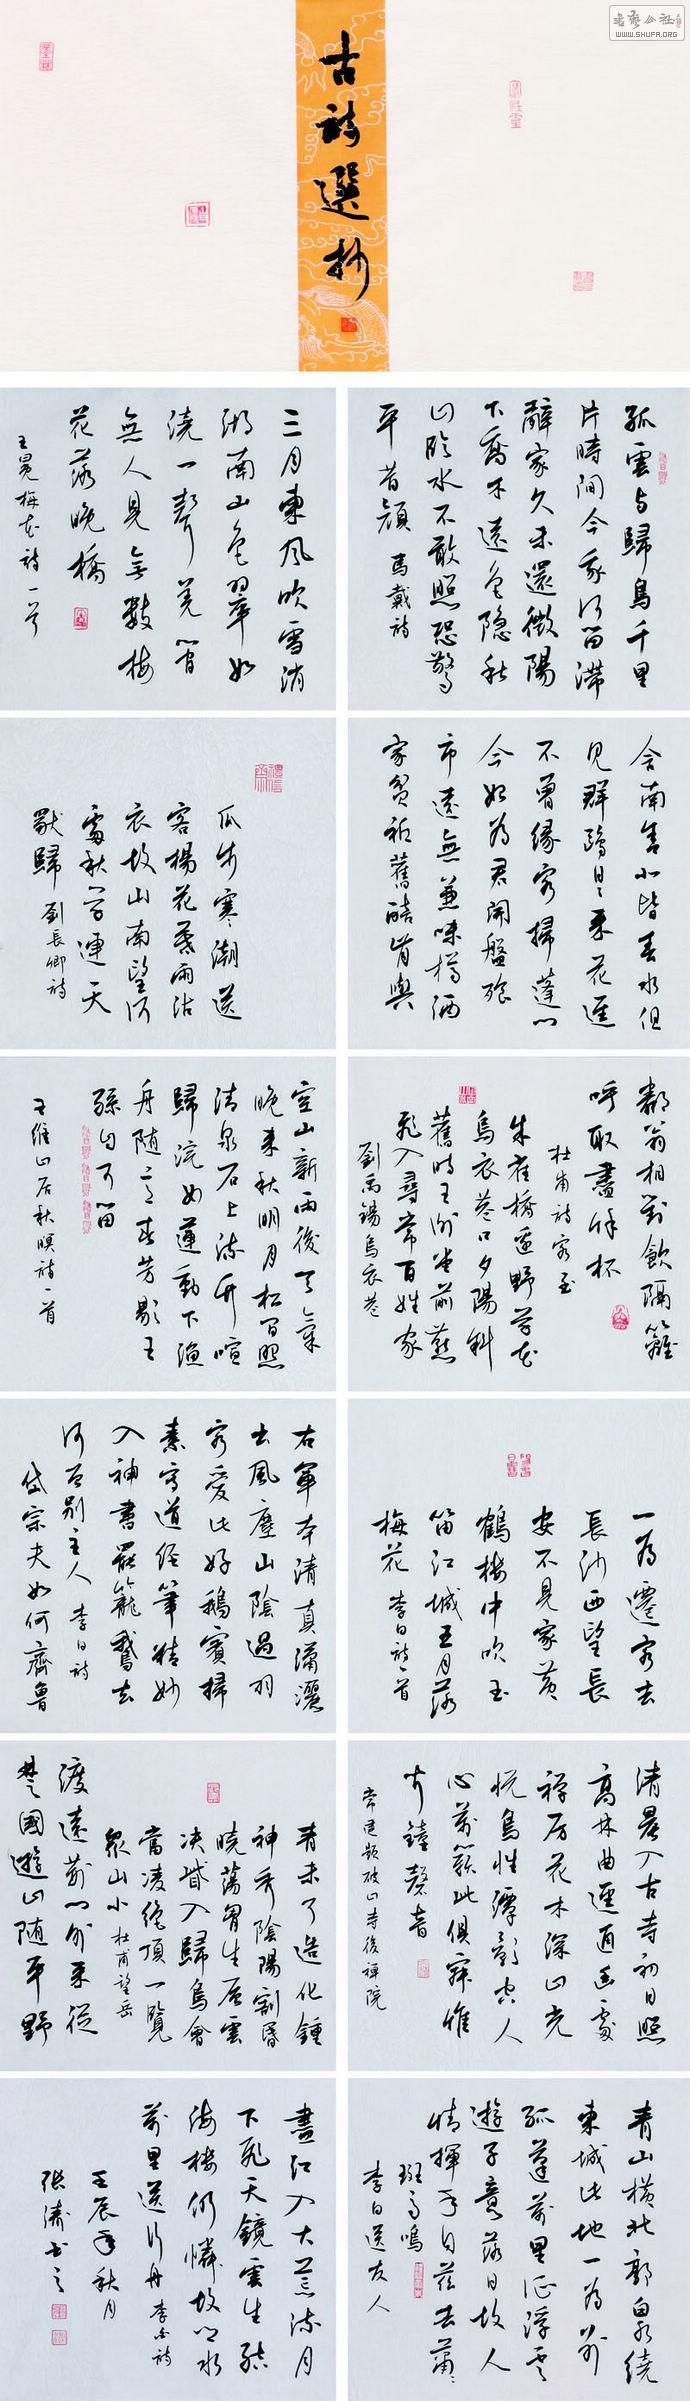 書藝公社
WWW.SHUFA.ORG
古詩選抄
孤雲與歸鳥千里
片時間念我何留滯
辭家久未還微陽
下喬木遠色隱秋
山臨水不敢照恐驚
平昔顏 馬戴詩
舍南舍北皆春水但
見群鷗日日來花逕
不曾緣客掃蓬門
今始為君開盤飧
市遠無兼味樽酒
家貧祇舊醅肯與
鄰翁相對飲隔籬
呼取盡餘杯
杜甫詩客至
朱雀橋邊野草花
烏衣巷口夕陽斜
舊時王謝堂前燕
飛入尋常百姓家
劉禹錫烏衣巷
一為遷客去
長沙西望長
安不見家黃
鶴樓中吹玉
笛江城五月落
梅花 李白詩一首
清晨入古寺初日照
高林曲逕通幽處
禪房花木深山光
悅鳥性潭影空人
心萬籟此俱寂惟
聞鐘磬音
常建題破山寺後禪院
青山橫北郭白水繞
東城此地一為別
孤蓬萬里征浮雲
遊子意落日故人
情揮手自茲去蕭蕭
班馬鳴
李白送友人
三月東風吹雪消
湖南山色翠如
澆一聲羌管
無人見無數梅
花落晚橋
王冕梅花詩一首
瓜步寒潮送
客楊花暮雨沾
衣故山南望何
處秋草連天
獨歸 劉長卿詩
空山新雨後天氣
晚來秋明月松間照
清泉石上流竹喧
歸浣女蓮動下漁
舟隨意春芳歇王
孫自可留
王維山居秋暝詩一首
右軍本清真瀟灑
出風塵山陰過羽
客愛此好鵝賓掃
素寫道經筆精妙
入神書罷籠鵝去
何曾別主人 李白詩
岱宗夫如何齊魯
青未了造化鍾
神秀陰陽割昏
曉蕩胸生層雲
決眥入歸鳥會
當凌絕頂一覽
眾山小 杜甫望岳
渡遠荊門外來從
楚國遊山隨平野
盡江入大荒流月
下飛天鏡雲生結
海樓仍憐故鄉水
萬里送行舟 李白詩
壬辰年秋月
張濤書之